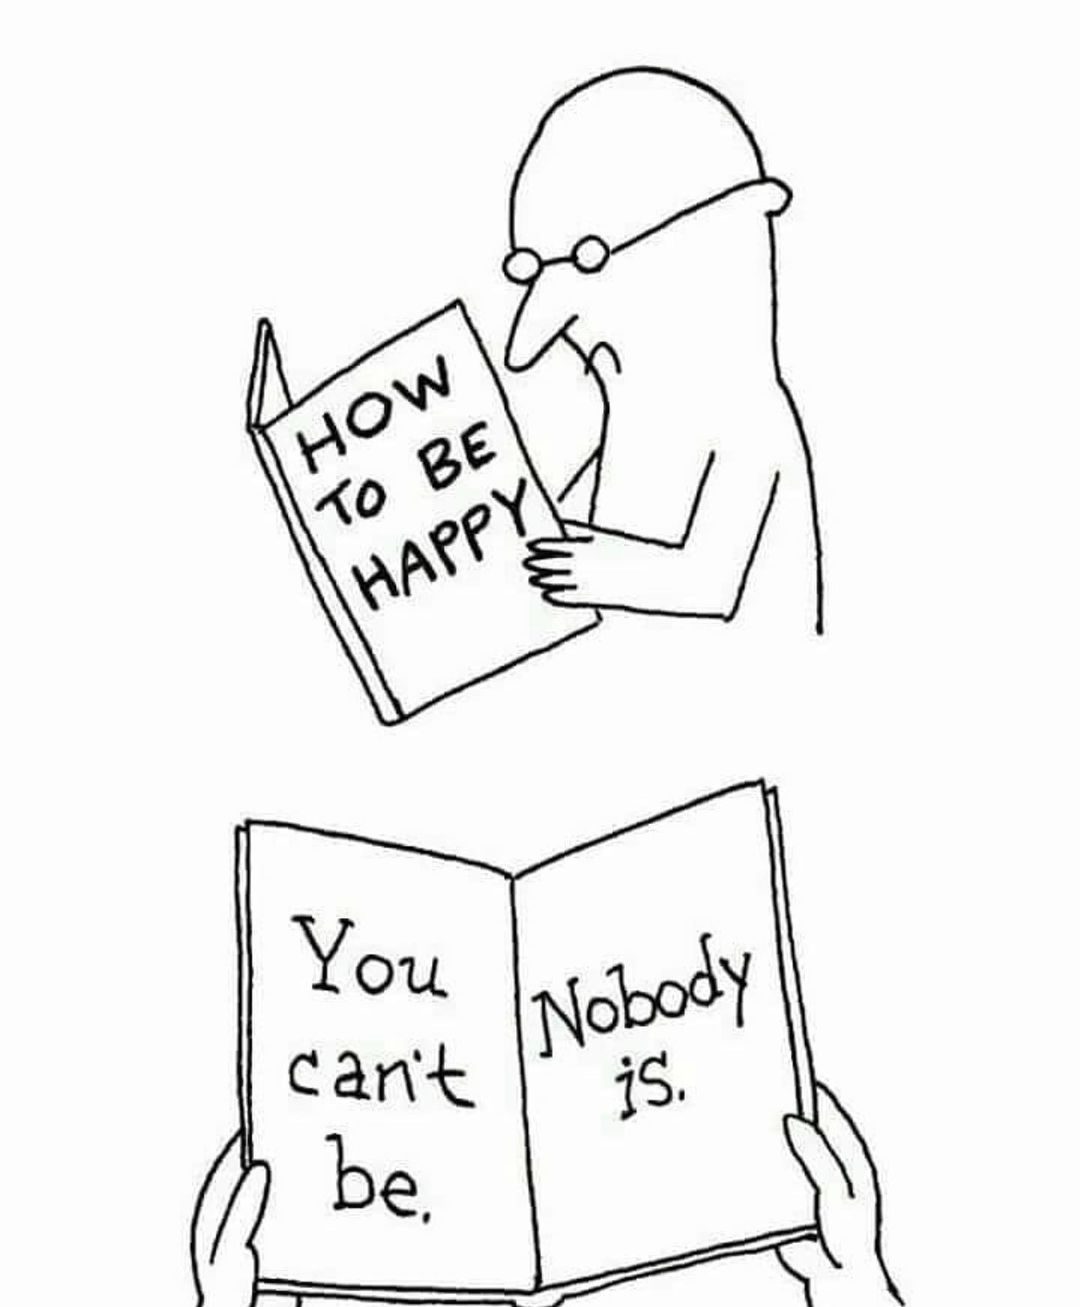 HOW
TO BE
HAPPY
You
can't
be.
Nobody
is.